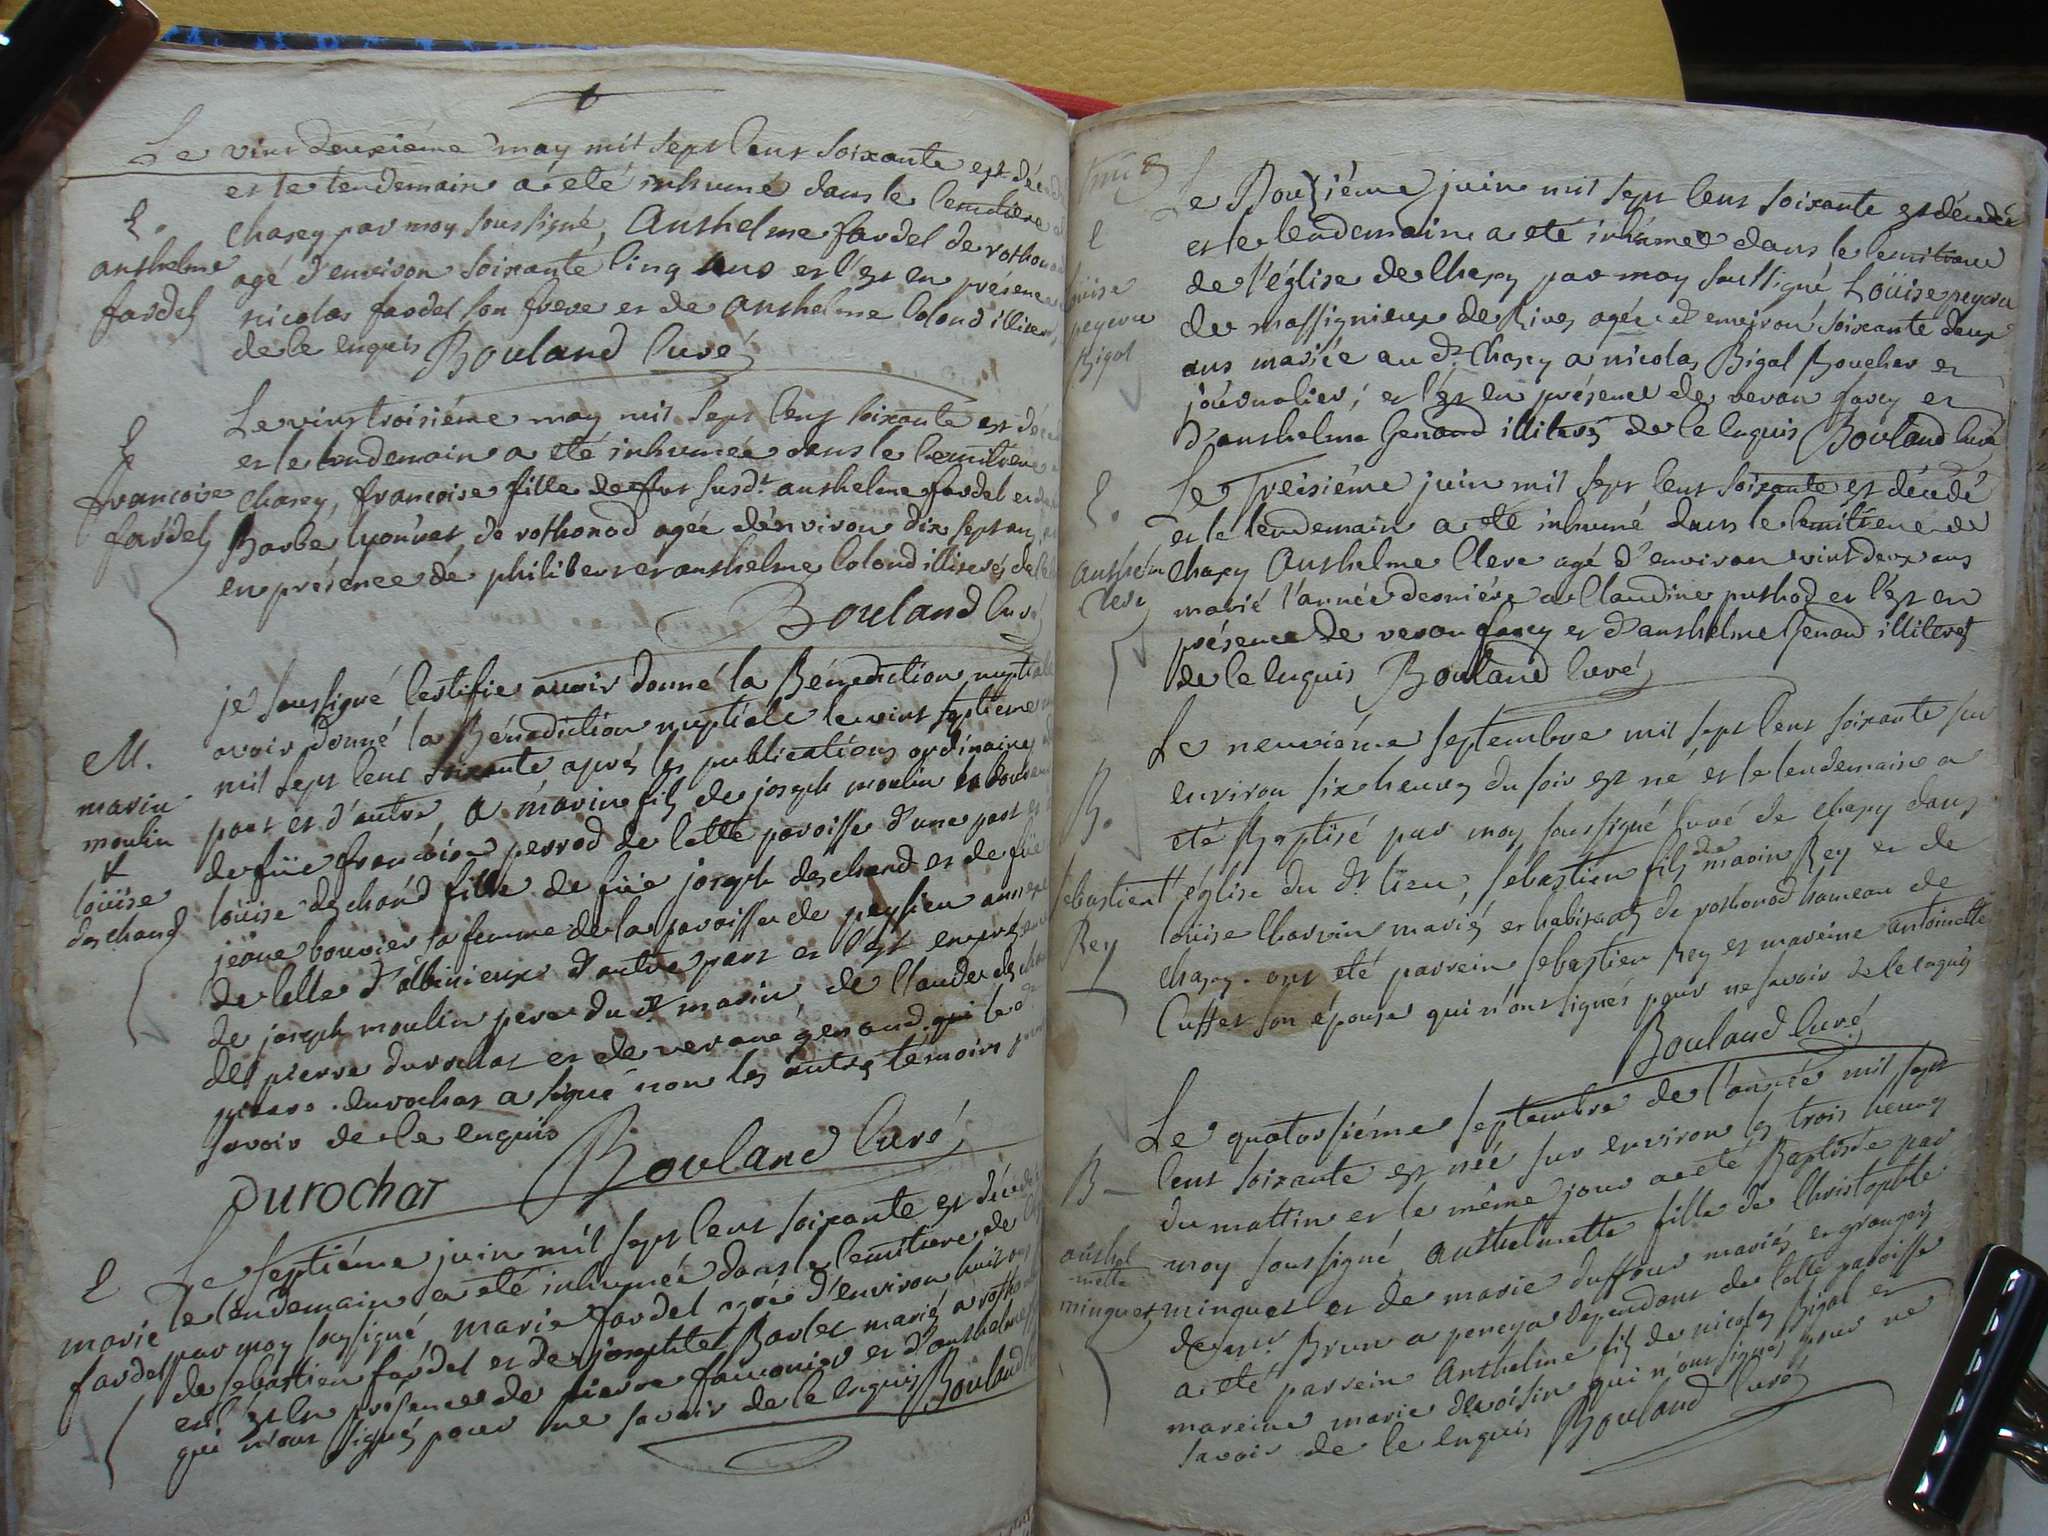 Le vint deuxiéme may mil sept cent soixante est
et le lendemain a eté inhumé dans le cemitiere
chasey par moy soussigné, Anthelme fardel de rothonod
agé d'environ soixante cinq ans et c'est en présence
nicolas fardel son frere et de anthelme colond
de ce enquis Bouland curé
E.
anthelme
fardel
Le vint troisiéme may mil sept cent soixante est
et le lendemain a eté inhumée dans le cemitiere
chasey, francoise fille de susdt anthelme fardel et
Barbe de rothonod agée d'environ dix sept ans
en présence de philibert et anthelme colond illiterés de
Bouland curé
E
francoise
fardel
je soussigné certifie avoir donné la Bénédiction nuptiale
avoir donné la Bénédiction nuptiale le vint septieme
mil sept cent soixante aprés les publications ordinaires
part et d'autre, a marin fils de joseph moulin
de füe francoise perrod de cette paroisse d'une part et
loüise deschand fille de füe joseph deschand et de füe
jeane bouvier sa femme de la paroisse de peysieu annexe
de celle d'albinieux d'autre part et c'est en présence
de joseph moulin pere du dt marin, de claude
de pierre durochat et de verané genand. qui le
pierre durochat a signé non les autres témoins
savoir de ce enquis
Durochat Bouland curé
M.
marin
moulin
&
loüise
deschand
Le septiéme juin mil sept cent soixante est décedée
le lendemain a eté inhumée dans le cemitiere de
par moy sousigné, marie fardel agée d'environ huit ans
de sebastien fardel et de josephte Barlet mariés a
et c'est en presence de pierre et d'anthelme
qui n'ont signés pour ne savoir de ce enquis Bouland
E
marie
fardel
Le Douziéme juin mil sept cent soixante est décedée
et le lendemain a eté inhumée dans le cemitiere
de l'église de Chasey par moy soussigné Loüise
de massignieux de Rives agée d'environ soixante deux
ans mariée au dt Chasey a nicolas Bigal Boucher et
journalier; et c'est en présence de veran et
d'anthelme Genand illiterés de ce enquis Bouland curé
E
loüise
Bigal
Le Treisiéme juin mil sept cent soixante est décedé
et le lendemain a eté inhumé dans le cemitiere de
Chasey Anthelme Clerc agé d'environ vint deux ans
marié l'année derniére a Claudine puthod et c'est en
présence de veran et d'anthelme Genand illiterés
de ce enquis Bouland curé
E.
Anthelm
Clerc
Le neuviéme septembre mil sept cent soixante sur
environ six heures du soir est né et le lendemain a
eté Baptisé par moy soussigné curé de chasey dans
l'église du dt lieu, sebastien fils de marin Rey et de
loüise Charvin mariés et habitants de rothonod hameau de
chasey. ont eté parrein sebastien Rey et mareine antoinette
Cuffet son épouse qui n'ont signés pour ne savoir de ce enquis
Bouland curé
B.
sebastien
Rey
Le quatorsiéme septembre de l'année mil sept
cent soixante est née sur environ les trois heures
du mattin et le même jour a eté Baptisée par
moy soussigné, anthelmette fille de Christophle
minguet et de marie duffour mariés et grangers
de mr. Brun a peneya dependant de cette paroisse
a eté parrein Anthelme fils de nicolas Bigal et
mareine marie qui n'ont signés pour ne
savoir de ce enquis Bouland curé
B
anthel
mette
minguet